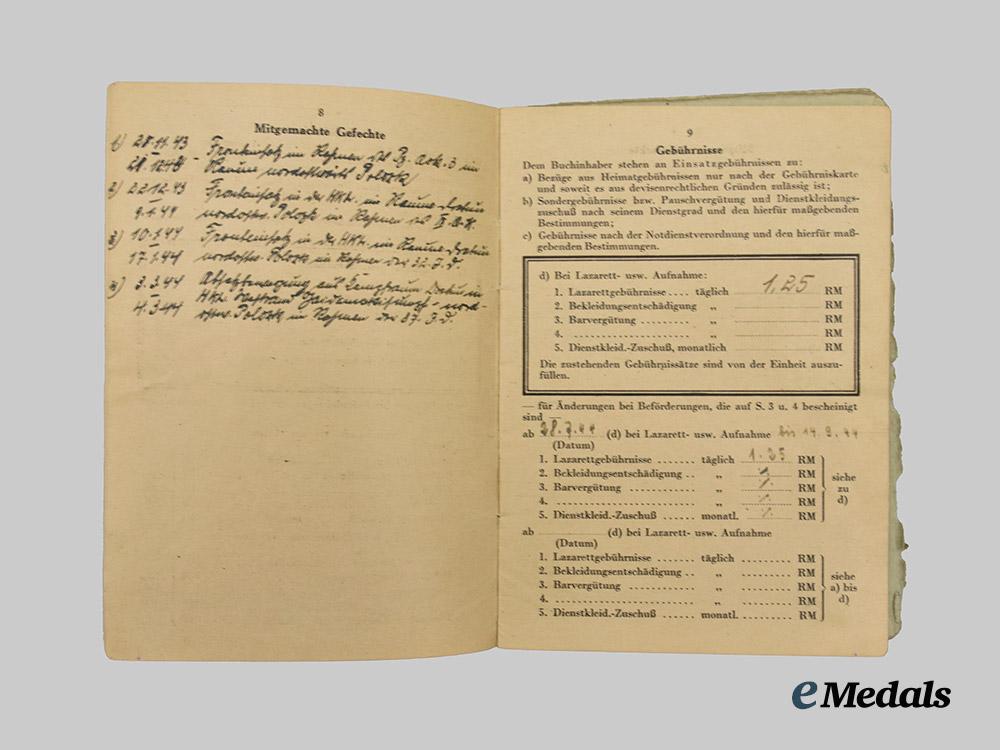 8
Mitgemachte Gefechte
1) 28.11.43 Fronteinsatz im Rahmen Pz. Aok. 3 im
Raume nordostwärts Polozk
2) 22.12.43 Fronteinsatz in der HKL. im Raume
9.1.44 nordostw. Polozk im Rahmen
3) 10.1.44 Fronteinsatz in der HKL. im Raume
17.1.44 nordostw. Polozk im Rahmen der 32. J.D.
4) 3.3.44 aus in
4.3.44 HKL. nord-
ostw. Polozk im Rahmen der 87. J.D.
9
Gebührnisse
Dem Buchinhaber stehen an Einsatzgebührnissen zu:
a) Bezüge aus Heimatgebührnissen nur nach der Gebührniskarte
und soweit es aus devisenrechtlichen Gründen zulässig ist;
b) Sondergebührnisse bzw. Pauschvergütung und Dienstkleidungs-
zuschuß nach seinem Dienstgrad und den hierfür maßgebenden
Bestimmungen;
c) Gebührnisse nach der Notdienstverordnung und den hierfür maß-
gebenden Bestimmungen.
d) Bei Lazarett- usw. Aufnahme:
1. Lazarettgebührnisse .... täglich 1,25 RM
2. Bekleidungsentschädigung „ RM
3. Barvergütung ......... „ RM
4. ...................... „ RM
5. Dienstkleid.-Zuschuß, monatlich RM
Die zustehenden Gebührnissätze sind von der Einheit auszu-
füllen.
— für Änderungen bei Beförderungen, die auf S. 3 u. 4 bescheinigt
sind —
ab 28.7.44 (d) bei Lazarett- usw. Aufnahme bis 14.9.44
(Datum)
1. Lazarettgebührnisse ...... täglich 1.25 RM
2. Bekleidungsentschädigung .. „ RM
3. Barvergütung ........... „ RM
4. ........................ „ RM
5. Dienstkleid.-Zuschuß ...... monatl. RM
siehe
zu
d)
ab (d) bei Lazarett- usw. Aufnahme
(Datum)
1. Lazarettgebührnisse ...... täglich RM
2. Bekleidungsentschädigung .. „ RM
3. Barvergütung ........... „ RM
4. ........................ „ RM
5. Dienstkleid.-Zuschuß ...... monatl. RM
siehe
a) bis
d)
eMedals